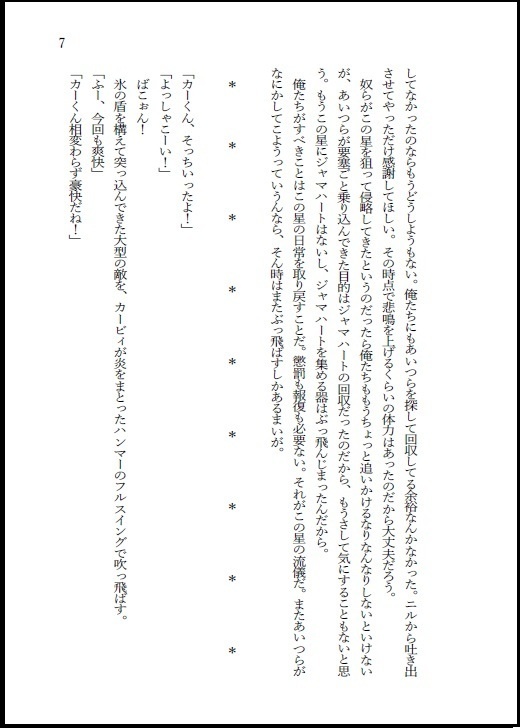 7
してなかったのならもうどうしようもない。俺たちにもあいつらを探して回収してる余裕なんかなかった。ニルから吐き出
させてやっただけ感謝してほしい。その時点で悲鳴を上げるくらいの体力はあったのだから大丈夫だろう。
奴らがこの星を狙って侵略してきたというのだったら俺たちももうちょっと追いかけるなりなんなりしないといけない
が、あいつらが要塞ごと乗り込んできた目的はジャマハートの回収だったのだから、もうさして気にすることもないと思
う。もうこの星にジャマハートはないし、ジャマハートを集める器はぶっ飛んじまったんだから。
俺たちがすべきことはこの星の日常を取り戻すことだ。懲罰も報復も必要ない。それがこの星の流儀だ。またあいつらが
なにかしてこようっていうんなら、そん時はまたぶっ飛ばすしかあるまいが。
* * * * * * * * *
「カーくん、そっちいったよ！」
「よっしゃこーい！」
ばこぉん！
氷の盾を構えて突っ込んできた大型の敵を、カービィが炎をまとったハンマーのフルスイングで吹っ飛ばす。
「ふー、今回も爽快」
「カーくん相変わらず豪快だね！」